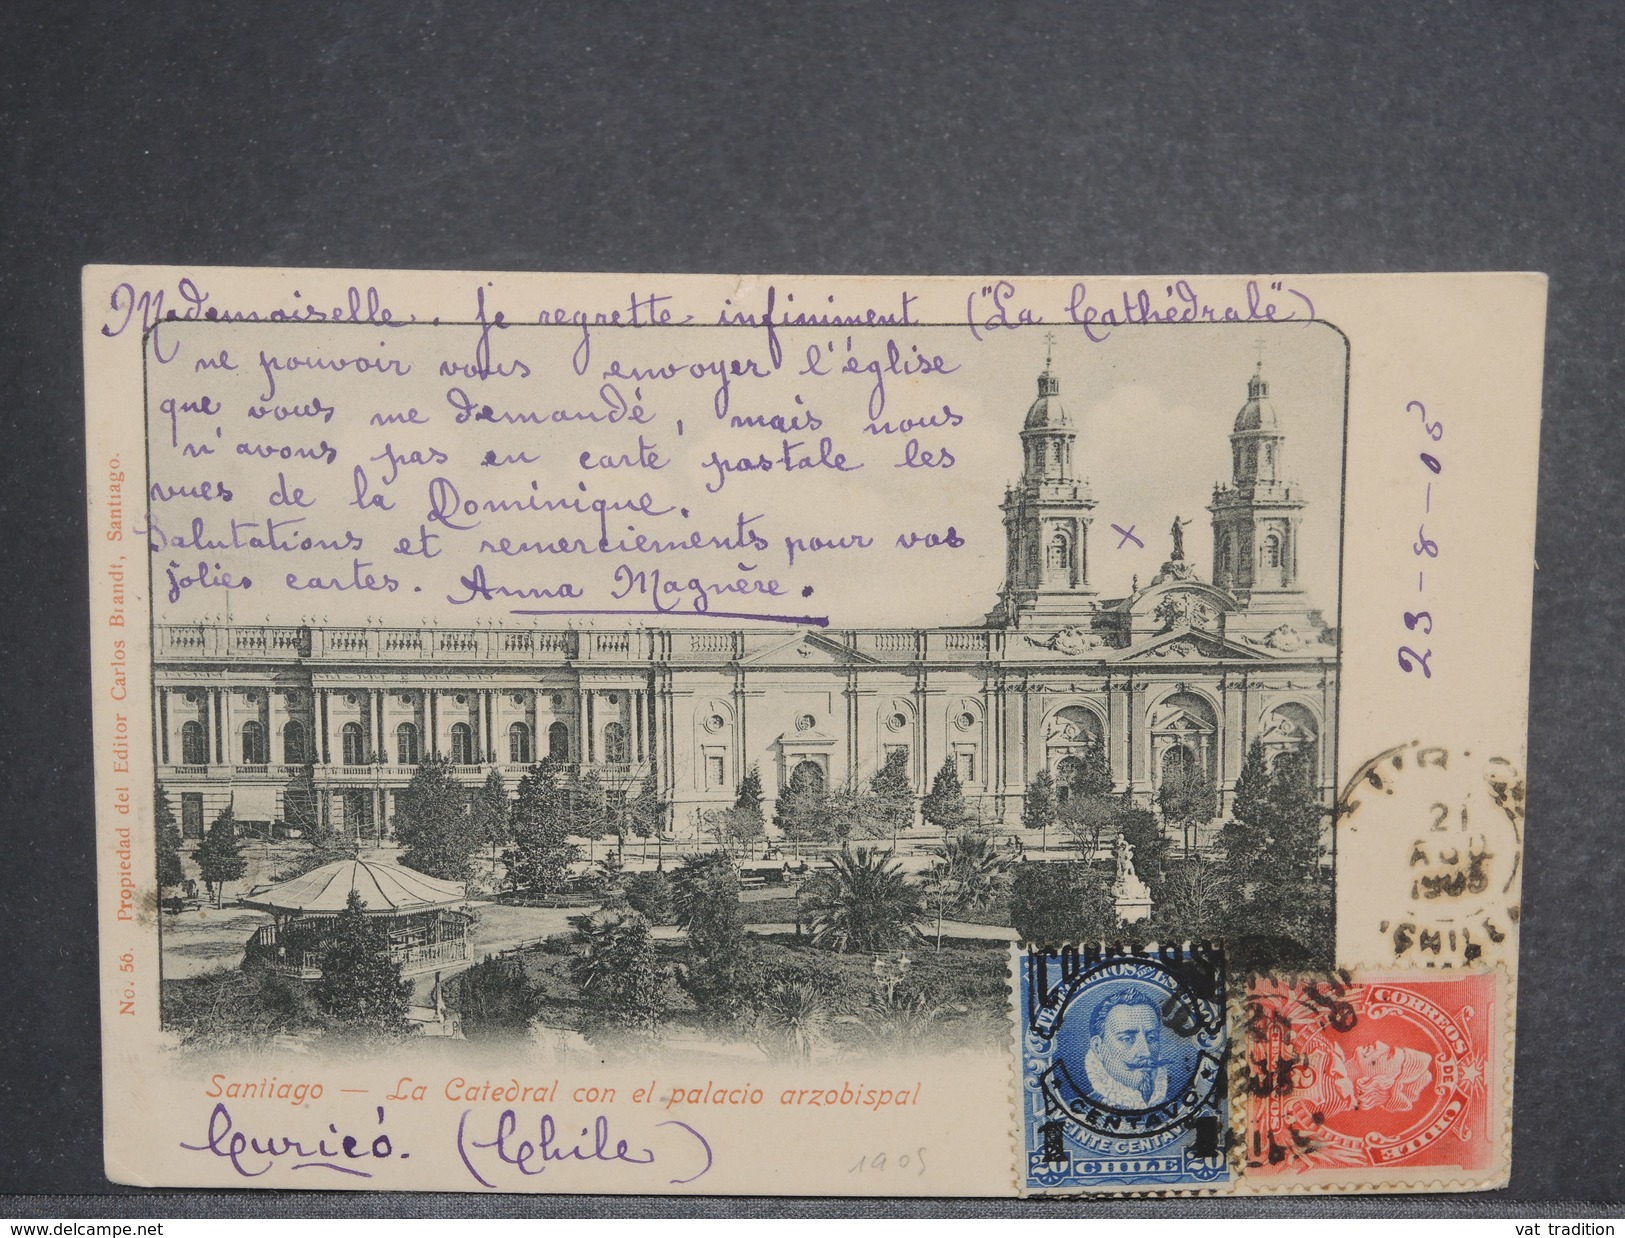 Mademoiselle. Je regrette infiniment ("La Cathédrale")
ne pouvoir vous envoyer l'église
que vous me demandé, mais nous
n'avons pas en carte postale les
vues de la Dominique.
Salutations et remerciements pour vos
jolies cartes. Anna Magnère.
x
23-8-05
No. 56. Propiedad del Editor Carlos Brandt, Santiago.
21
AGO
1905
Santiago — La Catedral con el palacio arzobispal
Curicó. (Chile)
1905
CORREOS
CENTAVO
1 1
VEINTE CENTAVOS
20 CHILE 20
CORREOS
DE
CHILE
vat tradition